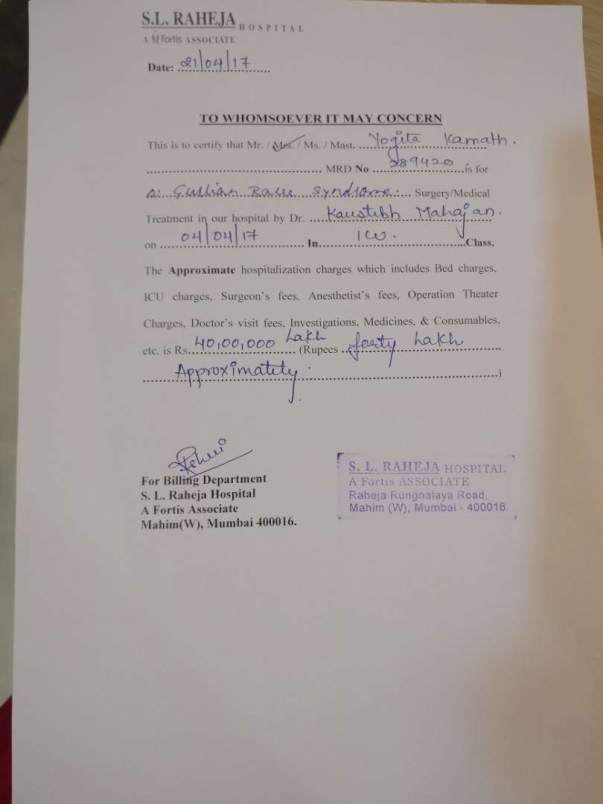 S.L. RAHEJA HOSPITAL
A Fortis ASSOCIATE
Date: 21/04/17
TO WHOMSOEVER IT MAY CONCERN
This is to certify that Mr. / Mrs. / Ms. / Mast. Yogita Kamath.
MRD No 289420 is for
Surgery/Medical
Treatment in our hospital by Dr. Kaustubh Mahajan.
on 04/04/17 In ICU. Class.
The Approximate hospitalization charges which includes Bed charges,
ICU charges, Surgeon's fees, Anesthetist's fees, Operation Theater
Charges, Doctor's visit fees, Investigations, Medicines, & Consumables,
etc. is Rs. 40,00,000 Lakh (Rupees forty Lakh
Approximately. )
For Billing Department
S. L. Raheja Hospital
A Fortis Associate
Mahim(W), Mumbai 400016.
S. L. RAHEJA HOSPITAL
A Fortis ASSOCIATE
Raheja Rungnalaya Road,
Mahim (W), Mumbai - 400016.